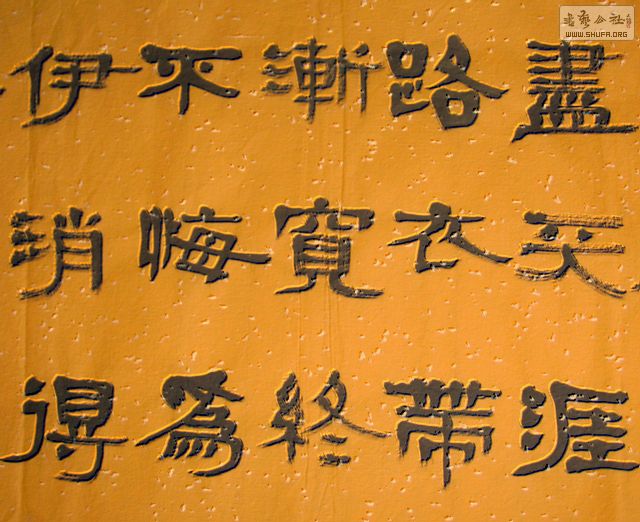 盡天涯
路衣帶
漸寬終
不悔為
伊消得
書藝公社
WWW.SHUFA.ORG